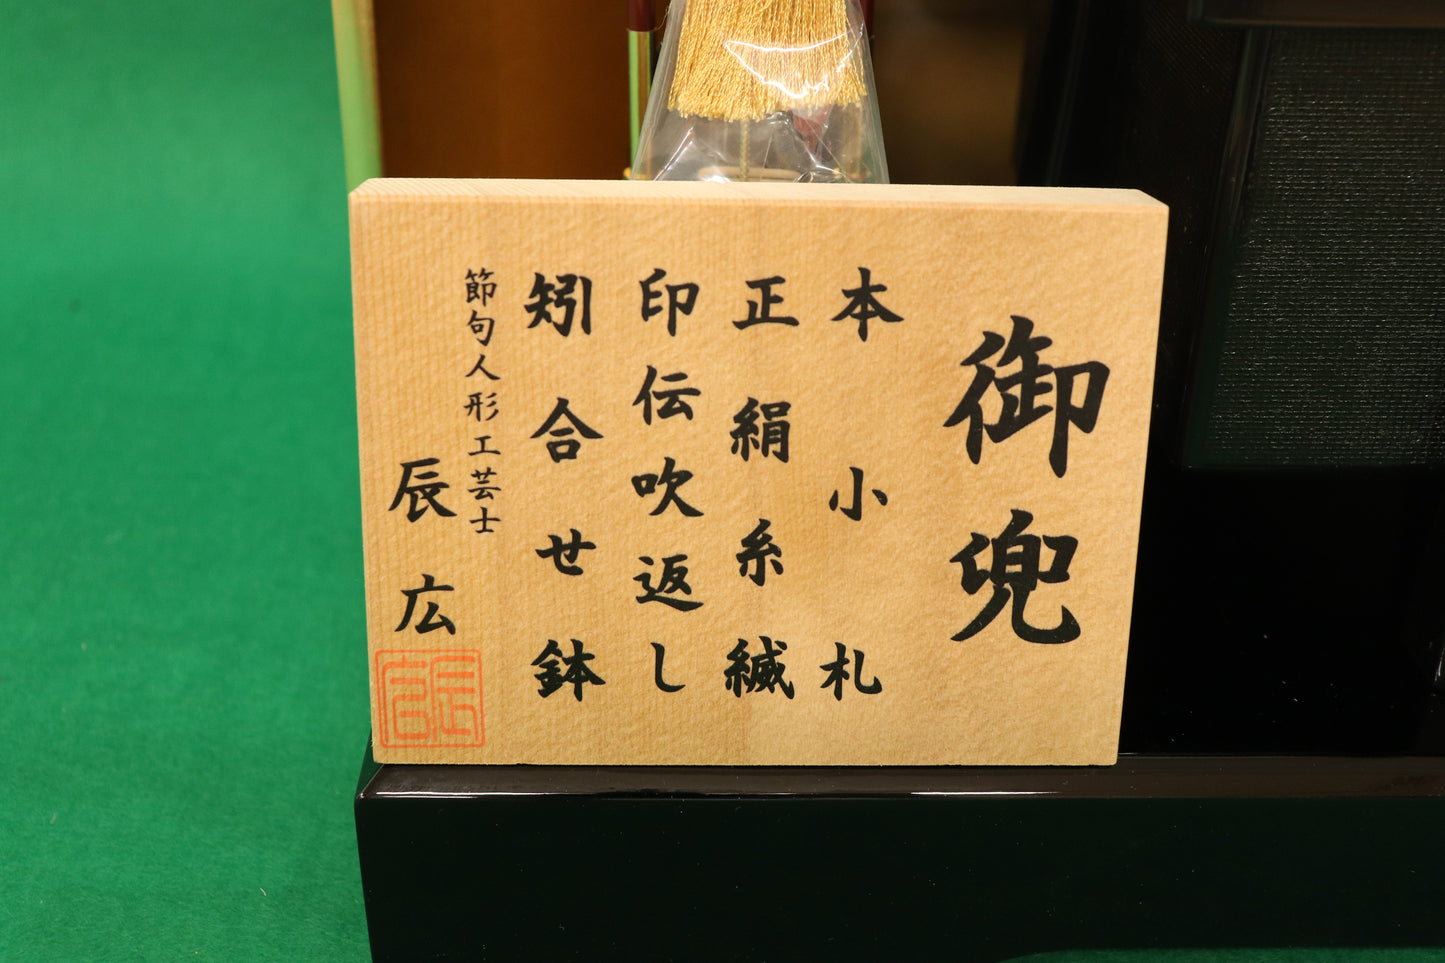 御兜
本小札
正絹糸縅
印伝吹返し
矧合せ鉢
節句人形工芸士
辰広